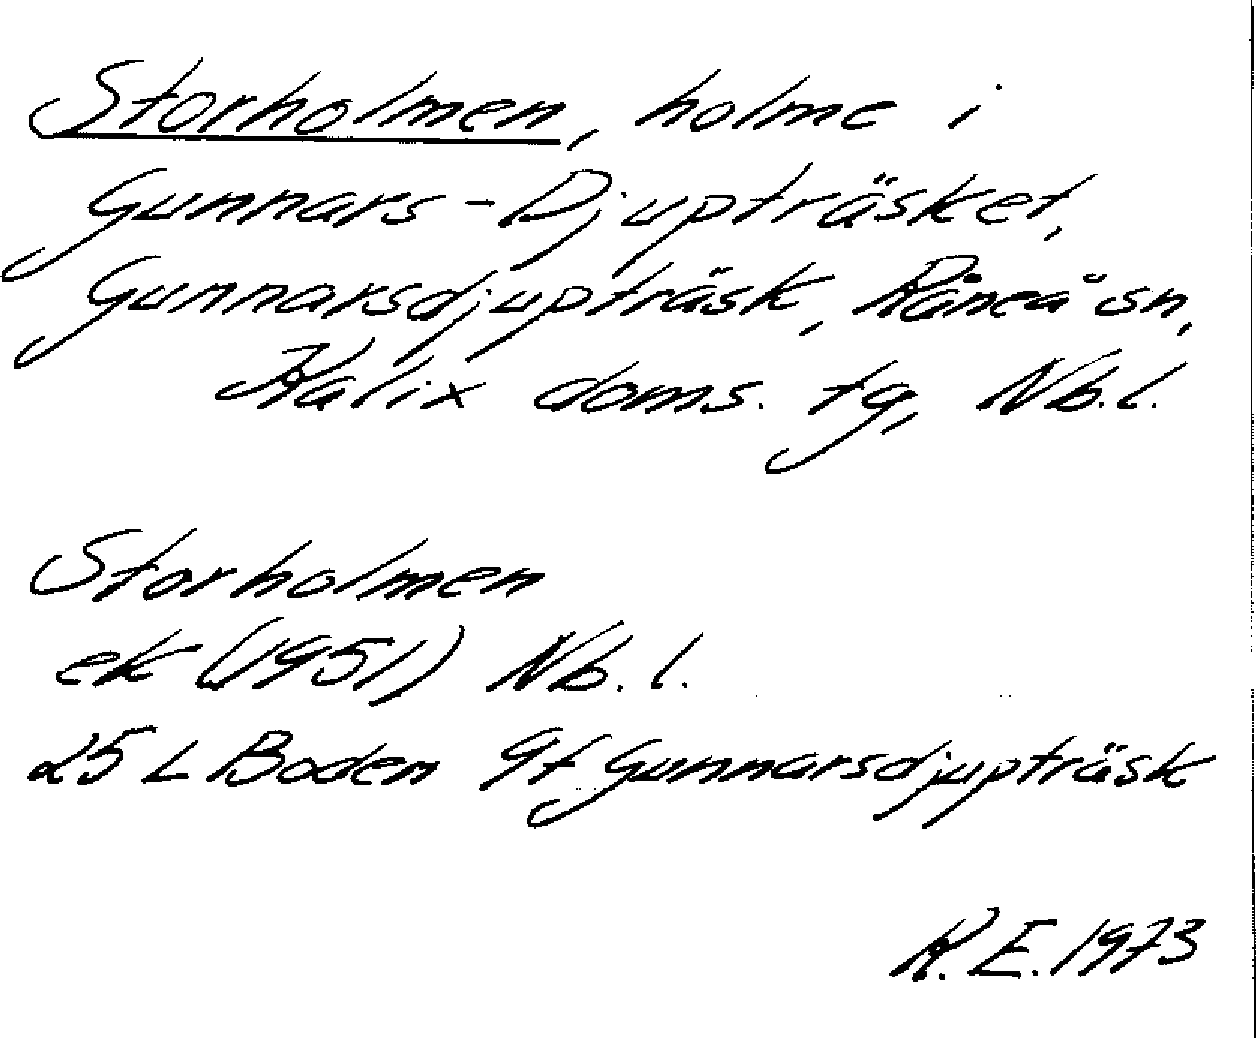 Storholmen, holme i
Gunnars-Djupträsket,
Gunnarsdjupträsk, Råneå sn,
Kalix doms. tg, Nb.l.
Storholmen
ek (1951) Nb.l.
25 L Boden 9f Gunnarsdjupträsk
K.E. 1973